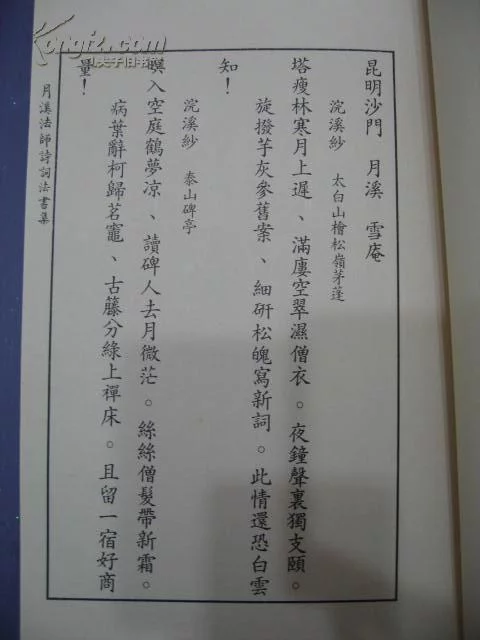 昆明沙門　月溪　雪庵
浣溪紗　太白山檜松嶺茅蓬
塔瘦林寒月上遲、滿廔空翠濕僧衣。夜鐘聲裏獨支頤。
旋撥芋灰參舊案、細研松魄寫新詞。此情還恐白雲
知！
浣溪紗　泰山碑亭
暝入空庭鶴夢凉、讀碑人去月微茫。絲絲僧髮帶新霜。
病葉辭柯歸茗竈、古籐分綠上禪床。且留一宿好商
量！
月溪法師詩詞法書集
kongfz.com
孔夫子旧书网